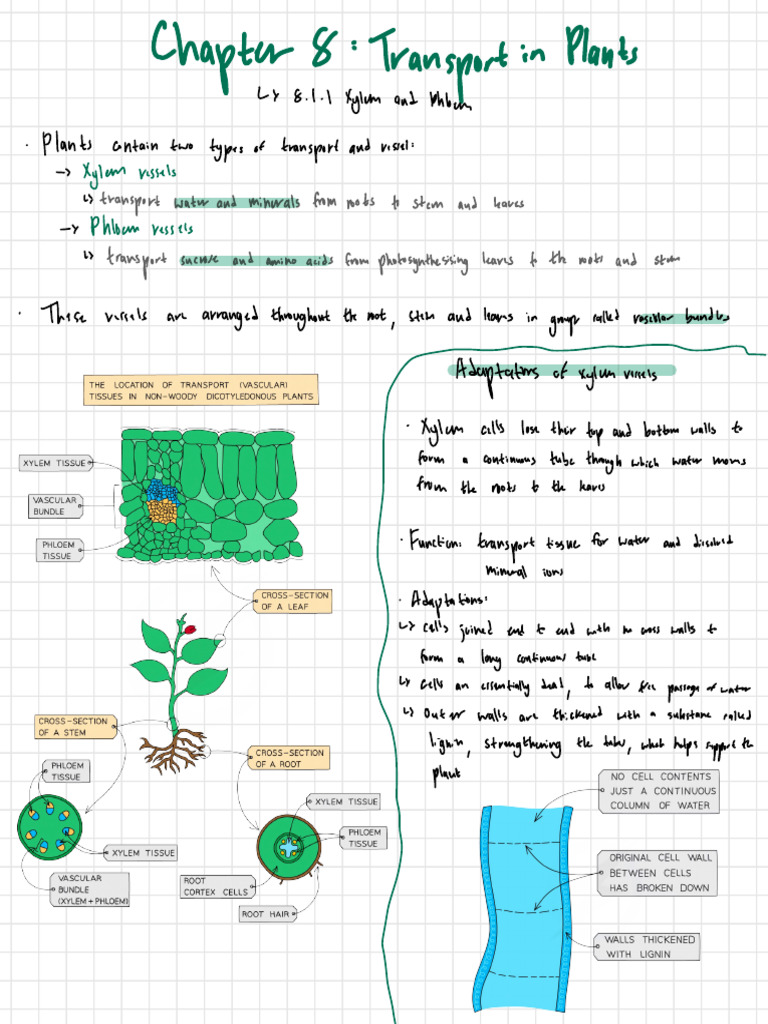 Chapter 8: Transport in Plants
↳ 8.1.1 Xylem and Phloem
· Plants contain two types of transport and vessel:
→ Xylem vessels
↳ transport water and minerals from roots to stem and leaves
→ Phloem vessels
↳ transport sucrose and amino acids from photosynthesising leaves to the roots and stem
· These vessels are arranged throughout the root, stem and leaves in group called vascular bundles
THE LOCATION OF TRANSPORT (VASCULAR)
TISSUES IN NON-WOODY DICOTYLEDONOUS PLANTS
XYLEM TISSUE
VASCULAR
BUNDLE
PHLOEM
TISSUE
CROSS-SECTION
OF A LEAF
CROSS-SECTION
OF A STEM
CROSS-SECTION
OF A ROOT
PHLOEM
TISSUE
XYLEM TISSUE
VASCULAR
BUNDLE
(XYLEM + PHLOEM)
XYLEM TISSUE
PHLOEM
TISSUE
ROOT
CORTEX CELLS
ROOT HAIR
Adaptations of xylem vessels
· Xylem cells lose their top and bottom walls to
form a continuous tube through which water moves
from the roots to the leaves
· Function: transport tissue for water and dissolved
mineral ions
· Adaptations:
↳ cells joined end to end with no cross walls to
form a long continuous tube
↳ cells are essentially dead, to allow free passage of water
↳ outer walls are thickened with a substance called
lignin, strengthening the tubes, which helps support the
plant
NO CELL CONTENTS
JUST A CONTINUOUS
COLUMN OF WATER
ORIGINAL CELL WALL
BETWEEN CELLS
HAS BROKEN DOWN
WALLS THICKENED
WITH LIGNIN